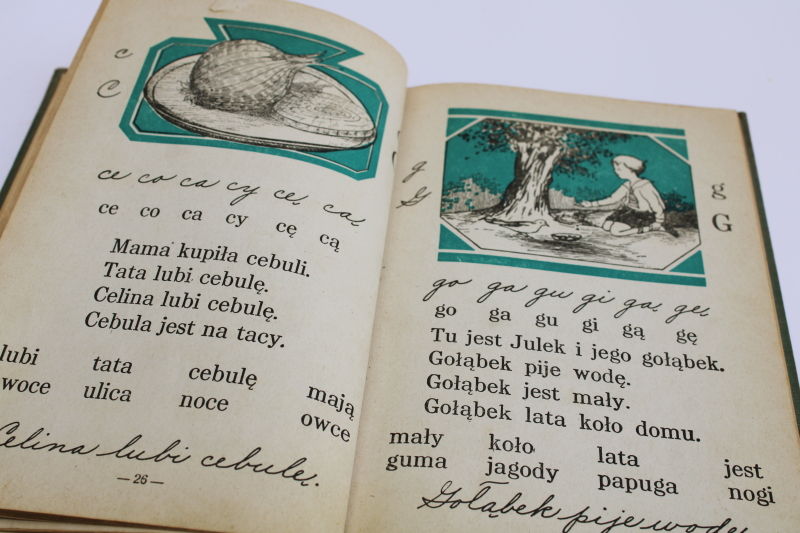 c
C
ce co ca cy cę cą
ce co ca cy cę cą
Mama kupiła cebuli.
Tata lubi cebulę.
Celina lubi cebulę.
Cebula jest na tacy.
lubi tata cebulę mają
owoce ulica noce owce
Celina lubi cebulę.
— 26 —
g g
G G
go ga gu gi gą gę
go ga gu gi gą gę
Tu jest Julek i jego gołąbek.
Gołąbek pije wodę.
Gołąbek jest mały.
Gołąbek lata koło domu.
mały koło lata jest
guma jagody papuga nogi
Gołąbek pije wodę